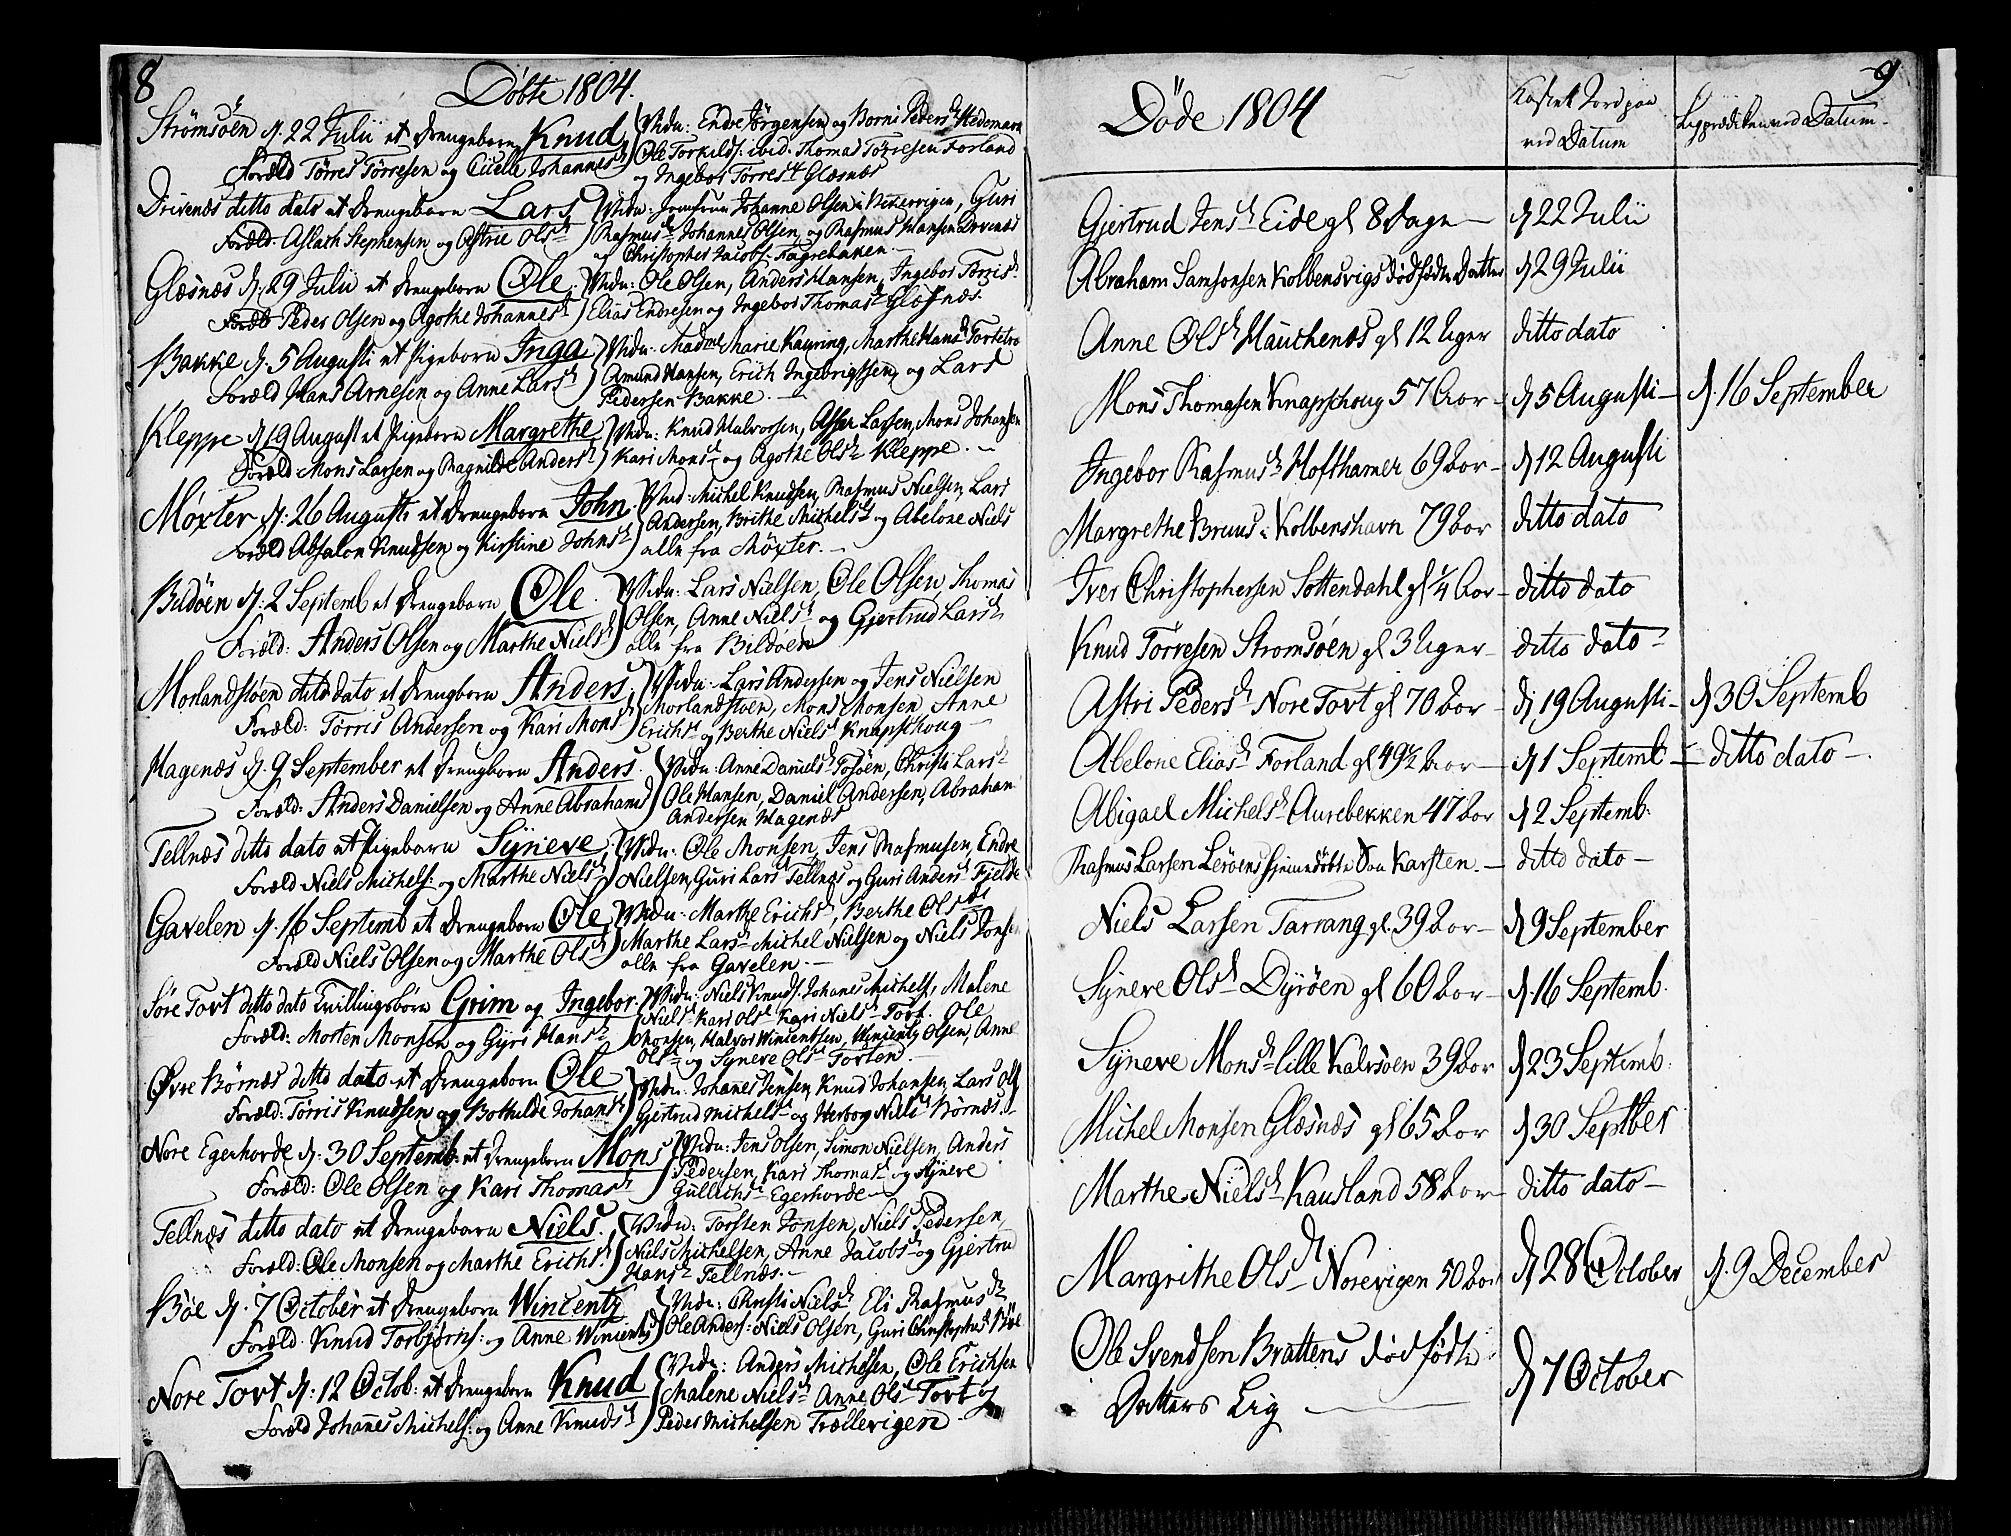 8
Döbte 1804.
Strömsöen d. 22 Julii et Drengebarn Knud } Vidn: Endre Jörgensen og Borni Pedersd Hedemark
Foræld Törres Törresen og Cicelie Johannesd } Ole Torkilds: ibid. Thomas Törresen Forland
og Ingebor Torresd Glæsnæs
Drivenæs ditto dato et Drengebarn Lars } Vidn: Jomfrue Johanne Olsen i Vikevigen, Guri
Foræld: Aslach Stephensen og Astrie Olsd } Rasmusd Johannes Olsen, og Rasmus Hansen Drivenæs
og Christopher Jacobs: Fagrebakken
Glæsnæs d. 29 Julii et Drengebarn Ole } Vidn: Ole Olsen, Anders Hansen, Ingebor Torrisd
Foræld Peder Olsen og Agothe Johannesd } Elias Endresen og Ingebor Thomasd Glæsnæs.
Bakke d. 5 Augusti et Pigebarn Inga } Vidn: Madme Marie Kauring, Marthe Hansd Tortetro
Foræld Hans Arnesen og Anne Larsd } Amund Hansen, Erich Ingebrigtsen og Lars
Pedersen Bakke.
Kleppe d. 19 August et Pigebarn Margrethe } Vidn: Knud Halvorsen, Asser Larsen, Mons Johansen
Foræld Mons Larsen og Ragnilde Andersd } Kari Monsd og Agothe Olsd Kleppe.
Möxter d. 26 August et Drengebarn John } Vind: Michel Knudsen, Rasmus Nielsen, Lars
Foræld Absalon Knudsen og Kirstine Johnsd } Andersen, Brithe Michelsd og Abelone Niels
alle fra Möxter.
Bildöen d. 2 Septemb et Drengebarn Ole. } Vidn: Lars Nielsen, Ole Olsen, Thomas
Foræld: Anders Olsen og Marthe Nielsd } Olsen, Anne Nielsd og Gjertrud Larsd
alle fra Bildöen
Morlandstöen dito dato et Drengbarn Anders } Vidn: Lars Andersen og Jens Nielsen
Foræld: Törris Andersen og Kari Monsd } Morlandstöen, Mons Monsen, Anne
Erichsd og Berthe Nielsd Knapschoug
Hagenæs d. 9 September et Drengbarn Anders. } Vidn: Anne Danielsd Tofsöen, Christi Larsd
Foræld: Anders Danielsen og Anne Abrahamsd } Ole Hansen, Daniel Andersen, Abraham
Andersen Hagenæs
Tellnæs ditto dato et Pigebarn Syneve } Vidn: Ole Monsen, Jens Rasmusen, Endre
Foræld Niels Michels: og Marthe Nielsd } Nielsen, Guri Larsd Tellnæs og Guri Andersd Fjelde
Gavelen d. 16 Septemb et Drengebarn Ole } Vidn: Marthe Erichsd, Berthe Olsd
Foræld Niels Olsen og Marthe Olsd } Marthe Larsd Michel Nielsen og Niels Jonsen
alle fra Gavelen.
Söre Tort ditto dato Tvillingebörn Grim og Ingebor. } Vidn: Niels Knuds. Johanes Michels, Malene
Foræld: Morten Monsen og Gyri Hansd } Nielsd Kari Olsd Kari Nielsd Tort. Ole
Monsen, Halvor Wincentsen, Wincentz Olsen, Anne
Olsd og Syneve Olsd Torten
Övre Börnæs ditto dato et Drengebarn Ole } Vidn: Johanes Jensen, Knud Johansen, Lars Ols
Foræld: Törris Knudsen og Bothilde Johansd } Gjertrud Michelsd og Herborg Nielsd Börnæs.
Nore Egerhorde d. 30 Septemb. et Drengebarn Mons } Vidn: Jens Olsen, Simon Nielsen, Anders
Foræld: Ole Olsen og Kari Thomasd } Pedersen, Kari Thomasd og Syneve
Gullichsd Egerhorde
Tellnæs ditto dato et Drengebarn Niels. } Vidn: Torsten Jonsen, Niels Pedersen,
Foræld: Ole Monsen og Marthe Erichsd } Niels Michelsen, Anne Jacobsd og Gjertrud
Hansd Tellnæs.
Böe d. 7 October et Drengebarn Wincentz } Vidn: Christi Nielsd Eli Rasmusd
Foræld: Knud Torbjörns: og Anne Wincentsd } Ole Anders: Niels Olsen, Guri Christophersd Böe
Nore Tort d. 12 Octob: et Drengebarn Knud } Vidn: Anders Michelsen, Ole Erichsen
Foræld Johanes Michels: og Anne Knudsd } Malene Nielsd Anne Olsd Tort og
Peder Michelsen Trællevigen
9
Döde 1804
Kastet Jord paa
ved Datum
Ligprædiken ved Datum
Gjertrud Jensd Eide gl 8 Dage d 22 Julii
Abraham Samsonsen Kolbensvigs dödfödte Datter d 29 Julii
Anne Olsd Hauchenæs gl 12 Uger ditto dato
Mons Thomasen Knapschoug 57 Aar d 5 Augusti d. 16 September
Ingebor Rasmusd Hofthamer 69 Aar d 12 Augusti
Margrethe Bruus i Kolbenshavn 79 Aar ditto dato
Iver Christophersen Sottendahl gl 1/4 Aar ditto dato
Knud Törresen Stromsöen gl 3 Uger ditto dato
Astri Pedersd Nore Tort gl 70 Aar d 19 Augusti d 30 Septemb
Abelone Eliasd Forland gl 49½ Aar d 1 Septemb ditto dato
Abigael Michelsd Aurebekken 47 Aar d 2 Septemb.
Rasmus Larsen Leröens hjemedöbte Sön Karsten. ditto dato
Niels Larsen Tarrang gl. 39 Aar d 9 September
Syneve Olsd Dyröen gl 60 Aar d. 16 Septemb.
Syneve Monsd lille Kalsöen 39 Aar d 23 Septemb.
Michel Monsen Glæsnæs gl 65 Aar d 30 Septber
Marthe Nielsd Kausland 58 Aar ditto dato
Margrithe Olsd Norevigen 50 Aar d 28 October d. 9 December
Ole Svendsen Brattens dödfödte
Datters Lig d 7 October